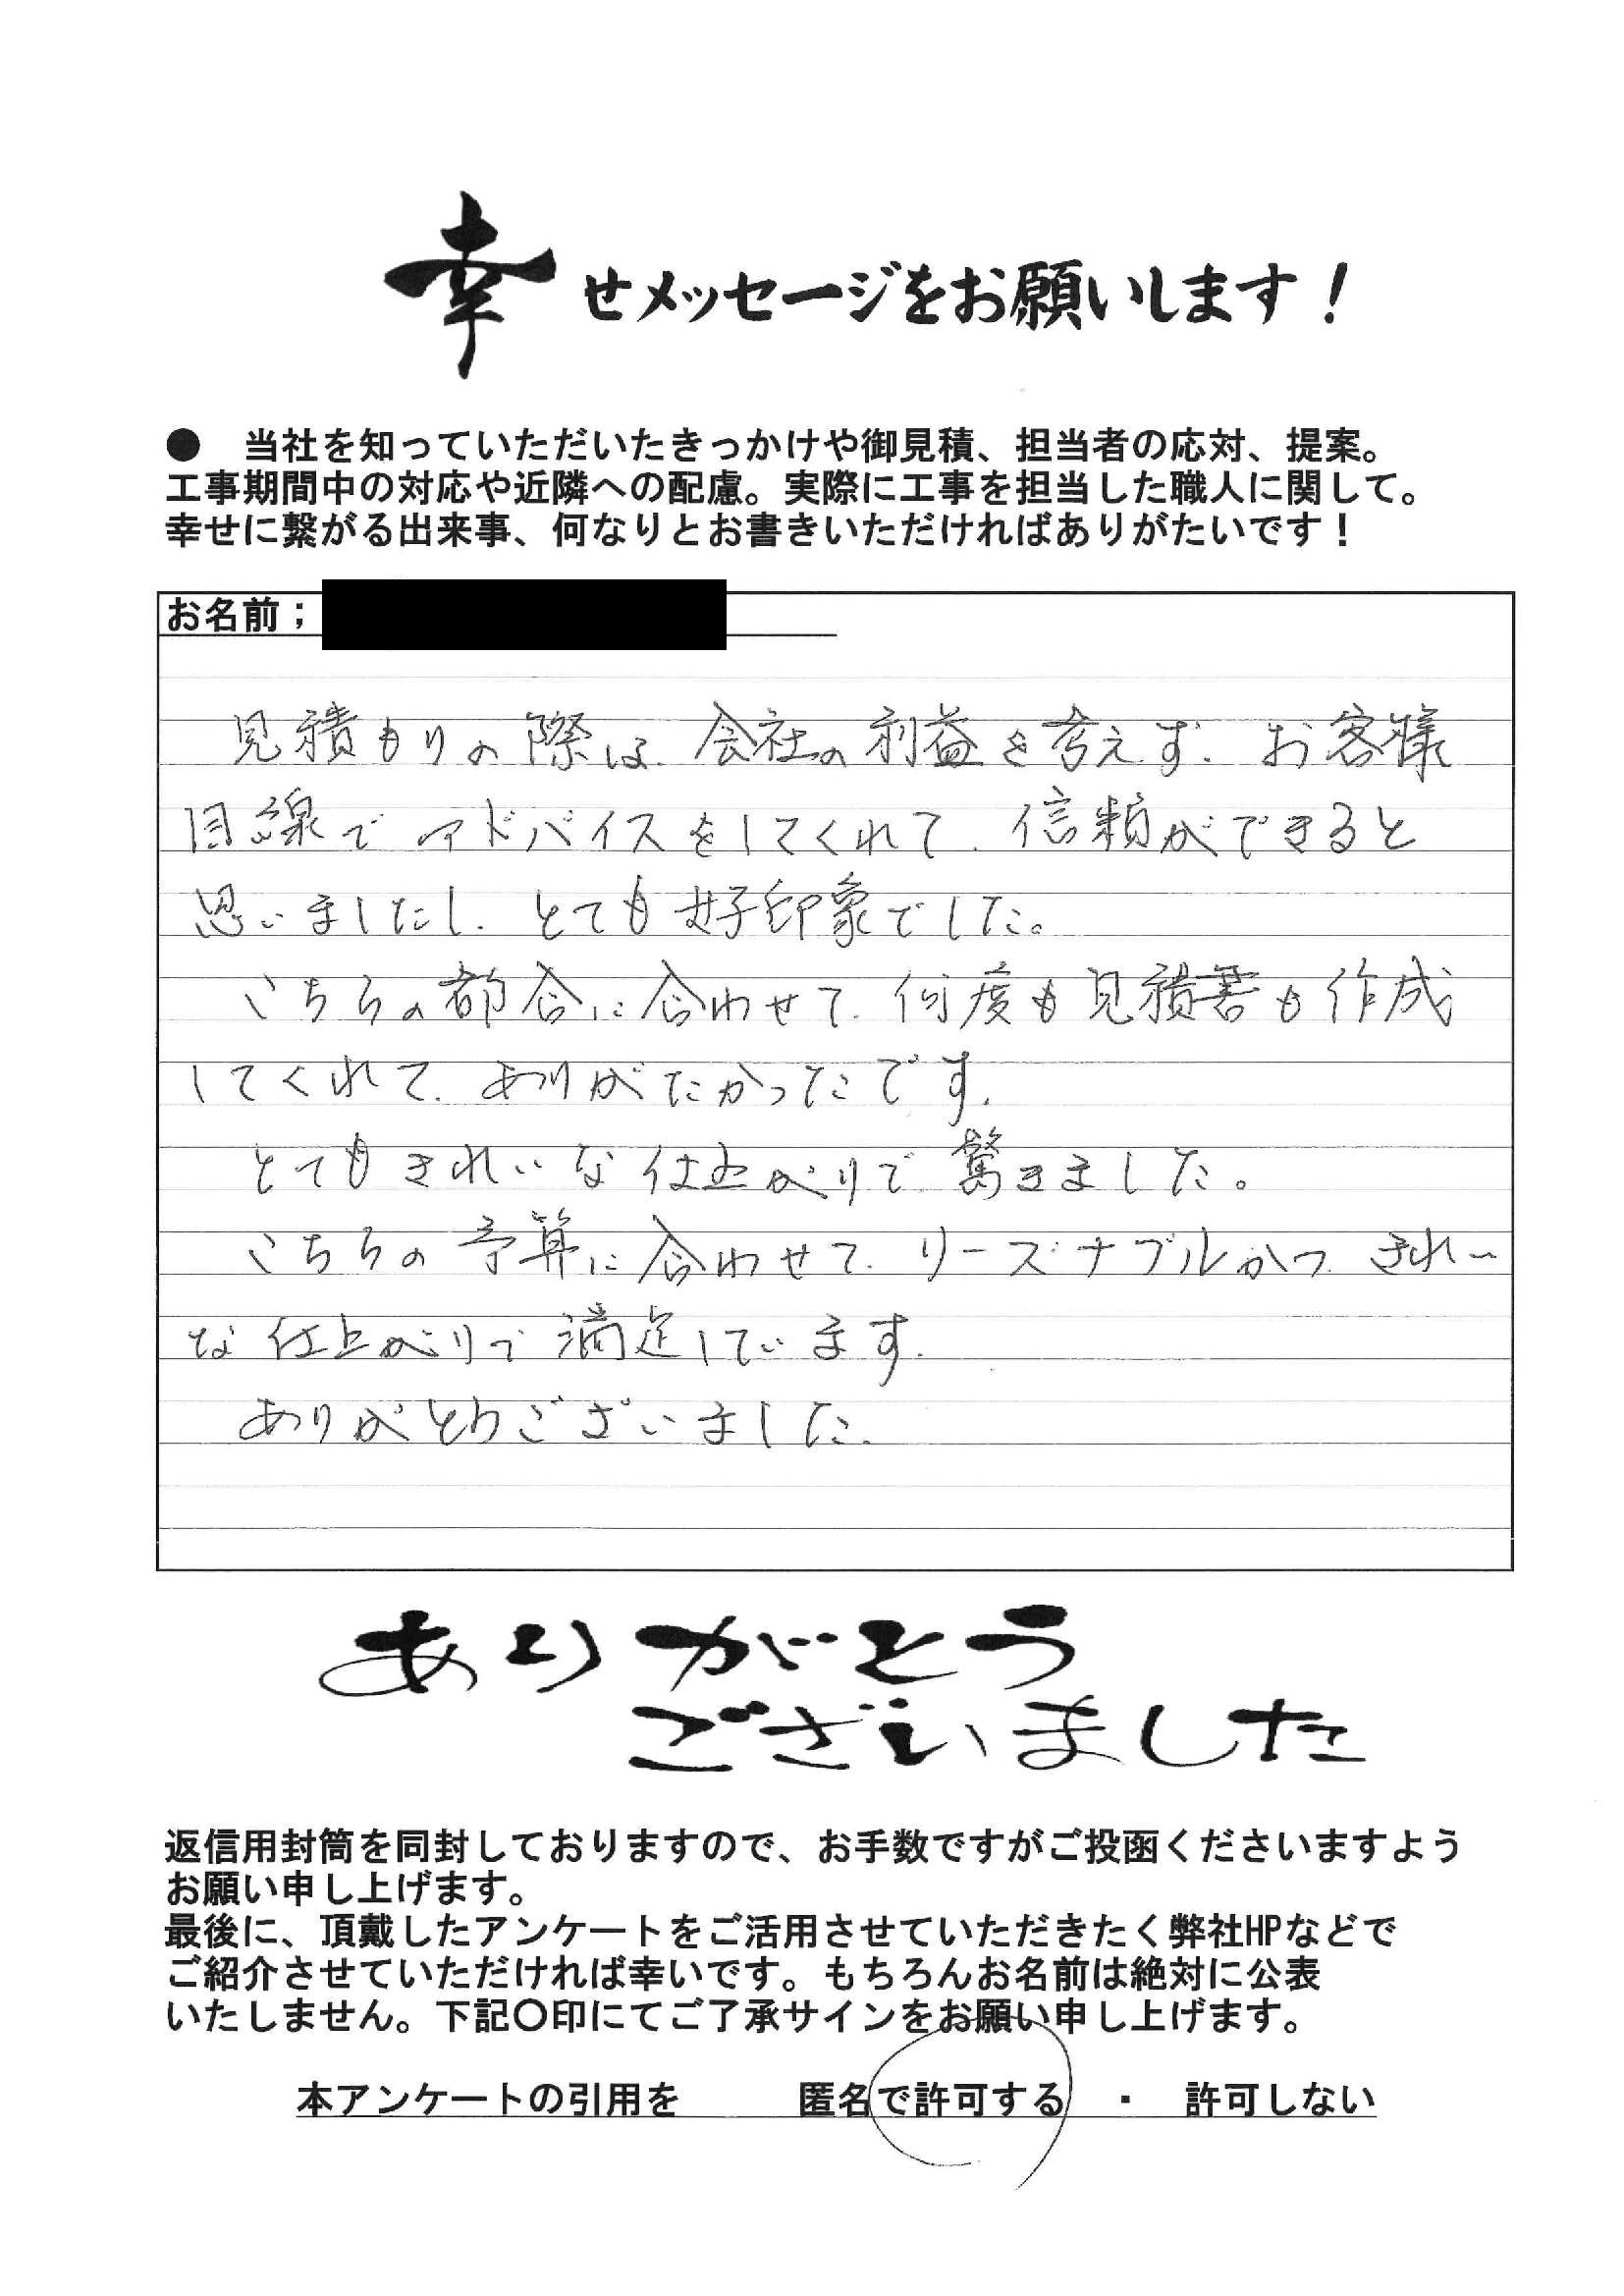 幸せメッセージをお願いします！
● 当社を知っていただいたきっかけや御見積、担当者の応対、提案。
工事期間中の対応や近隣への配慮。実際に工事を担当した職人に関して。
幸せに繋がる出来事、何なりとお書きいただければありがたいです！
お名前；
見積もりの際は、会社の利益を考えず、お客様
目線でアドバイスをしてくれて、信頼ができると
思いましたし、とても好印象でした。
こちらの都合に合わせて、何度も見積書も作成
してくれて、ありがたかったです。
とてもきれいな仕上がりで驚きました。
こちらの予算に合わせて、リーズナブルかつ、きれい
な仕上がりで満足しています。
ありがとうございました。
ありがとう
ございました
返信用封筒を同封しておりますので、お手数ですがご投函くださいますよう
お願い申し上げます。
最後に、頂戴したアンケートをご活用させていただきたく弊社HPなどで
ご紹介させていただければ幸いです。もちろんお名前は絶対に公表
いたしません。下記〇印にてご了承サインをお願い申し上げます。
本アンケートの引用を 匿名で許可する ・ 許可しない